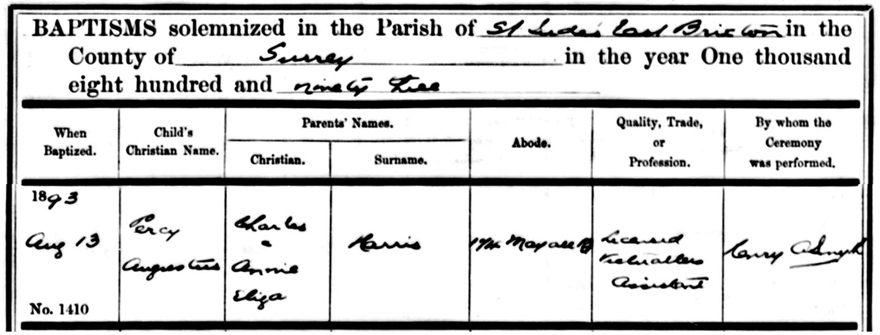 BAPTISMS solemnized in the Parish of St Jude's East Brixton in the
County of Surrey in the year One thousand
eight hundred and ninety three
When
Baptized.
Child's
Christian Name.
Parents' Names.
Christian.
Surname.
Abode.
Quality, Trade,
or
Profession.
By whom the
Ceremony
was performed.
1893
Aug 13
No. 1410
Percy
Augustus
Charles
&
Annie
Eliza
Harris
Mayall Rd
Licensed
Victuallers
Assistant